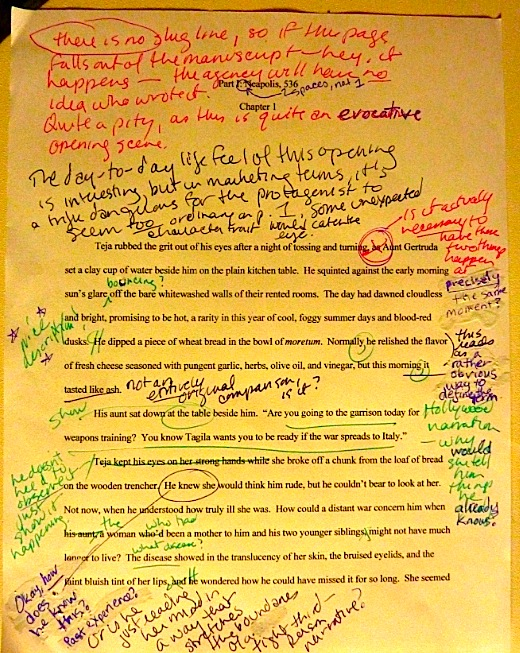 there is no slug line, so if this page
falls out of the manuscript — hey, it
happens — the agency will have no
idea who wrote it.
Quite a pity, as this is quite an evocative
opening scene.
Part I: Neapolis, 536
2 spaces, not 1
Chapter 1
The day-to-day life feel of this opening
is interesting, but in marketing terms, it's
a trifle dangerous for the protagonist to
seem too ordinary on p. 1. Some unexpected
character trait would catch the
eye.
Is it actively
necessary to
have these
two things
happen at
precisely
the same
moment?
Teja rubbed the grit out of his eyes after a night of tossing and turning, as Aunt Gertruda
set a clay cup of water beside him on the plain kitchen table. He squinted against the early morning
bouncing?
sun's glare off the bare whitewashed walls of their rented rooms. The day had dawned cloudless
and bright, promising to be hot, a rarity in this year of cool, foggy summer days and blood-red
nice
description!
dusks. He dipped a piece of wheat bread in the bowl of moretum. Normally he relished the flavor
of fresh cheese seasoned with pungent garlic, herbs, olive oil, and vinegar, but this morning it
tasted like ash.
not an entirely
original
comparison,
is it?
this
reads
as a
rather
obvious
way to
define the
term
show
His aunt sat down at the table beside him. "Are you going to the garrison today for
weapons training? You know Tagila wants you to be ready if the war spreads to Italy."
Hollywood
narration
— why
would
she tell
him
things
he
already
knows?
Teja kept his eyes on her strong hands while she broke off a chunk from the loaf of bread
on the wooden trencher. He knew she would think him rude, but he couldn't bear to look at her.
he doesn't
need to
observe it
just
show it
happening.
Not now, when he understood how truly ill she was. How could a distant war concern him when
the
who had
his aunt, a woman who'd been a mother to him and his two younger siblings, might not have much
what disease?
longer to live? The disease showed in the translucency of her skin, the bruised eyelids, and the
faint bluish tint of her lips, and he wondered how he could have missed it for so long. She seemed
Okay, how
does
he know
this?
Past experience?
Or is he
just reading
her mind in
a way that
stretches
the boundaries
of a tight third-
person
narrative?